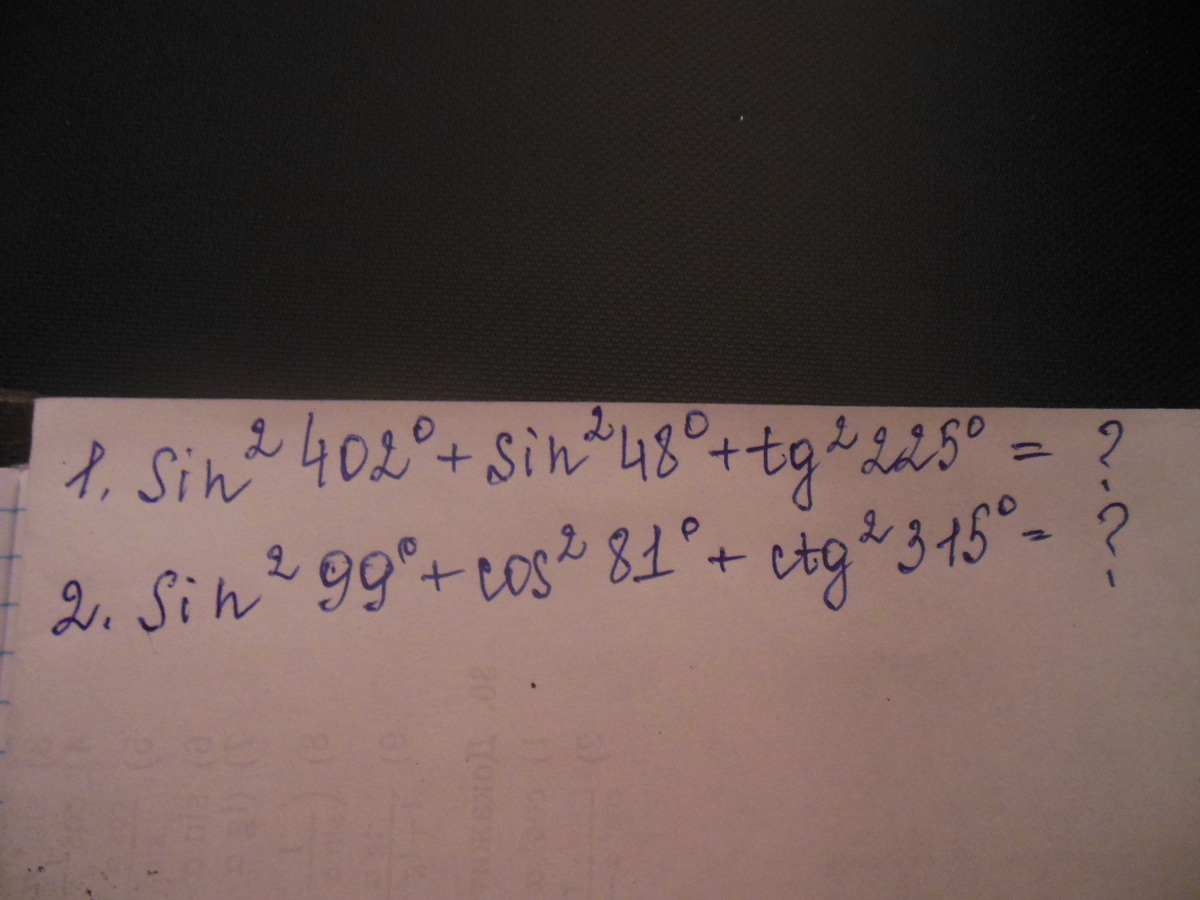 1. Sin² 402° + sin² 48° + tg² 225° = ?
2. Sin² 99° + cos² 81° + ctg² 315° = ?